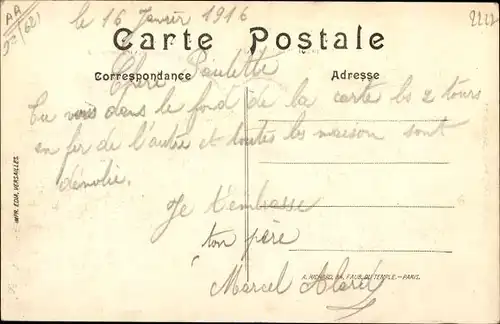 le 16 Janvier 1916
AA
(62)
Carte Postale
Correspondance
Adresse
Chère Paulette
Tu vois dans le fond de la carte les 2 tours
en fer de l'autre et toutes les maison sont
démolie.
Je t'embrasse
ton père
Marcel
IMPR. EDIA, VERSAILLES.
A. RICHARD, 84, FAUB. DU TEMPLE. - PARIS.